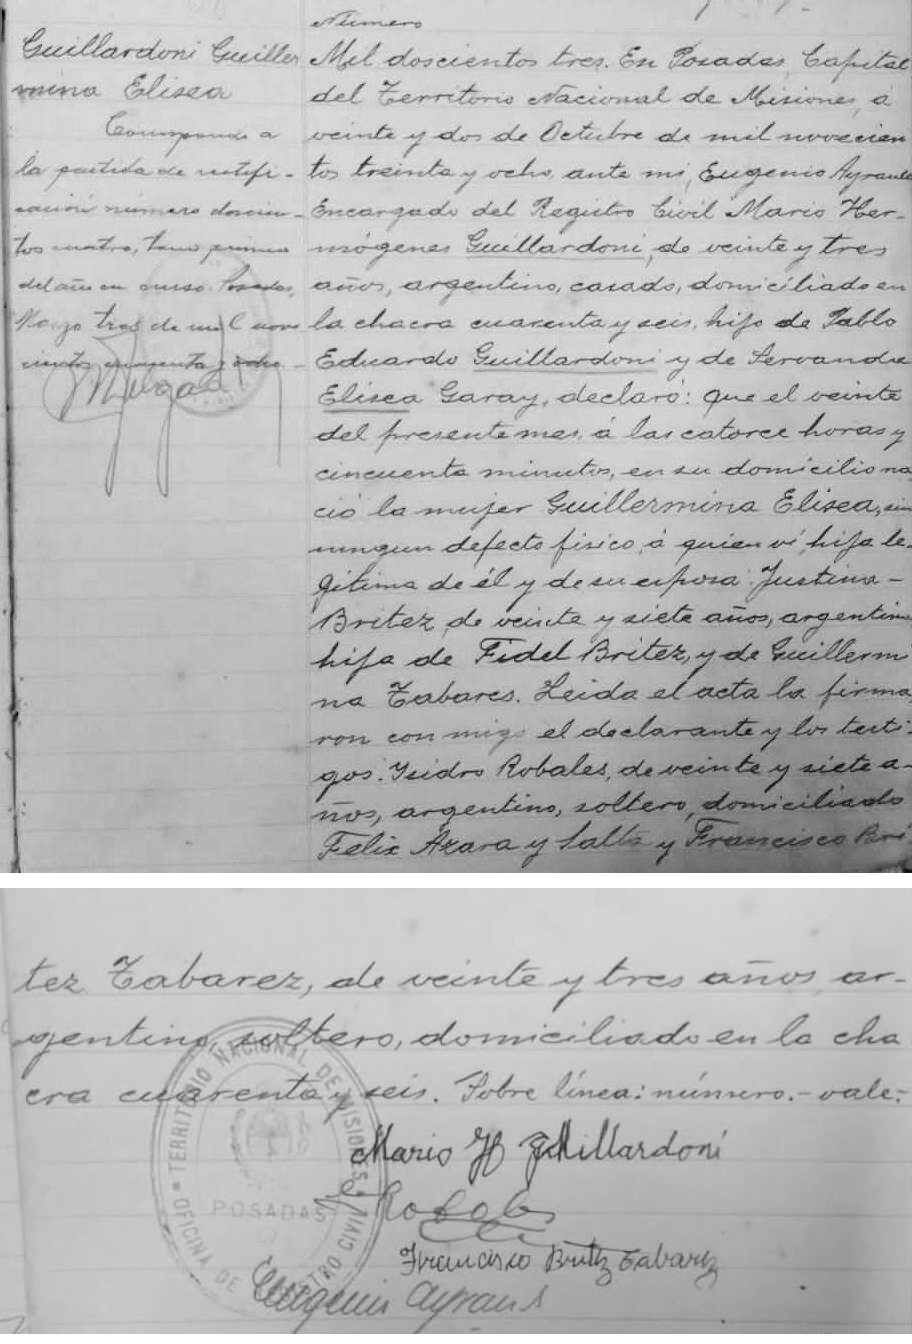 Guillardoni Guiller
mina Elisea
Corresponde a
la partida de rectifi-
cación número doscien-
tos cuatro, tomo primero
del año en curso. Posadas,
Marzo tres de mil nove
cientos cincuenta y ocho.-
Número
Mil doscientos tres. En Posadas, Capital
del Territorio Nacional de Misiones, á
veinte y dos de Octubre de mil novecien
tos treinta y ocho, ante mi, Eugenio Ayrault
Encargado del Registro Civil Mario Her-
mógenes Guillardoni, de veinte y tres
años, argentino, casado, domiciliado en
la chacra cuarenta y seis, hijo de Pablo
Eduardo Guillardoni y de Servanda
Elisea Garay, declaró: que el veinte
del presente mes, á las catorce horas y
cincuenta minutos, en su domicilio na
ció la mujer Guillermina Elisea, sin
ningun defecto fisico, á quien ví, hija le-
gítima de él y de su esposa: Justina-
Britez, de veinte y siete años, argentina
hija de Fidel Britez, y de Guillermi
na Tabares. Leida el acta la firma
ron con migo el declarante y los testi-
gos: Isidro Robales, de veinte y siete a-
ños, argentino, soltero, domiciliado
Felix Azara y Salta y Francisco Bri
tez Tabarez, de veinte y tres años, ar-
gentino, soltero, domiciliado en la cha
cra cuarenta y seis. Sobre línea: número.- vale:-
Mario H Guillardoni
Robales
Francisco Britez Tabarez
Eugenio Ayrault
TERRITORIO NACIONAL DE MISIONES
POSADAS
OFICINA DE REGISTRO CIVIL